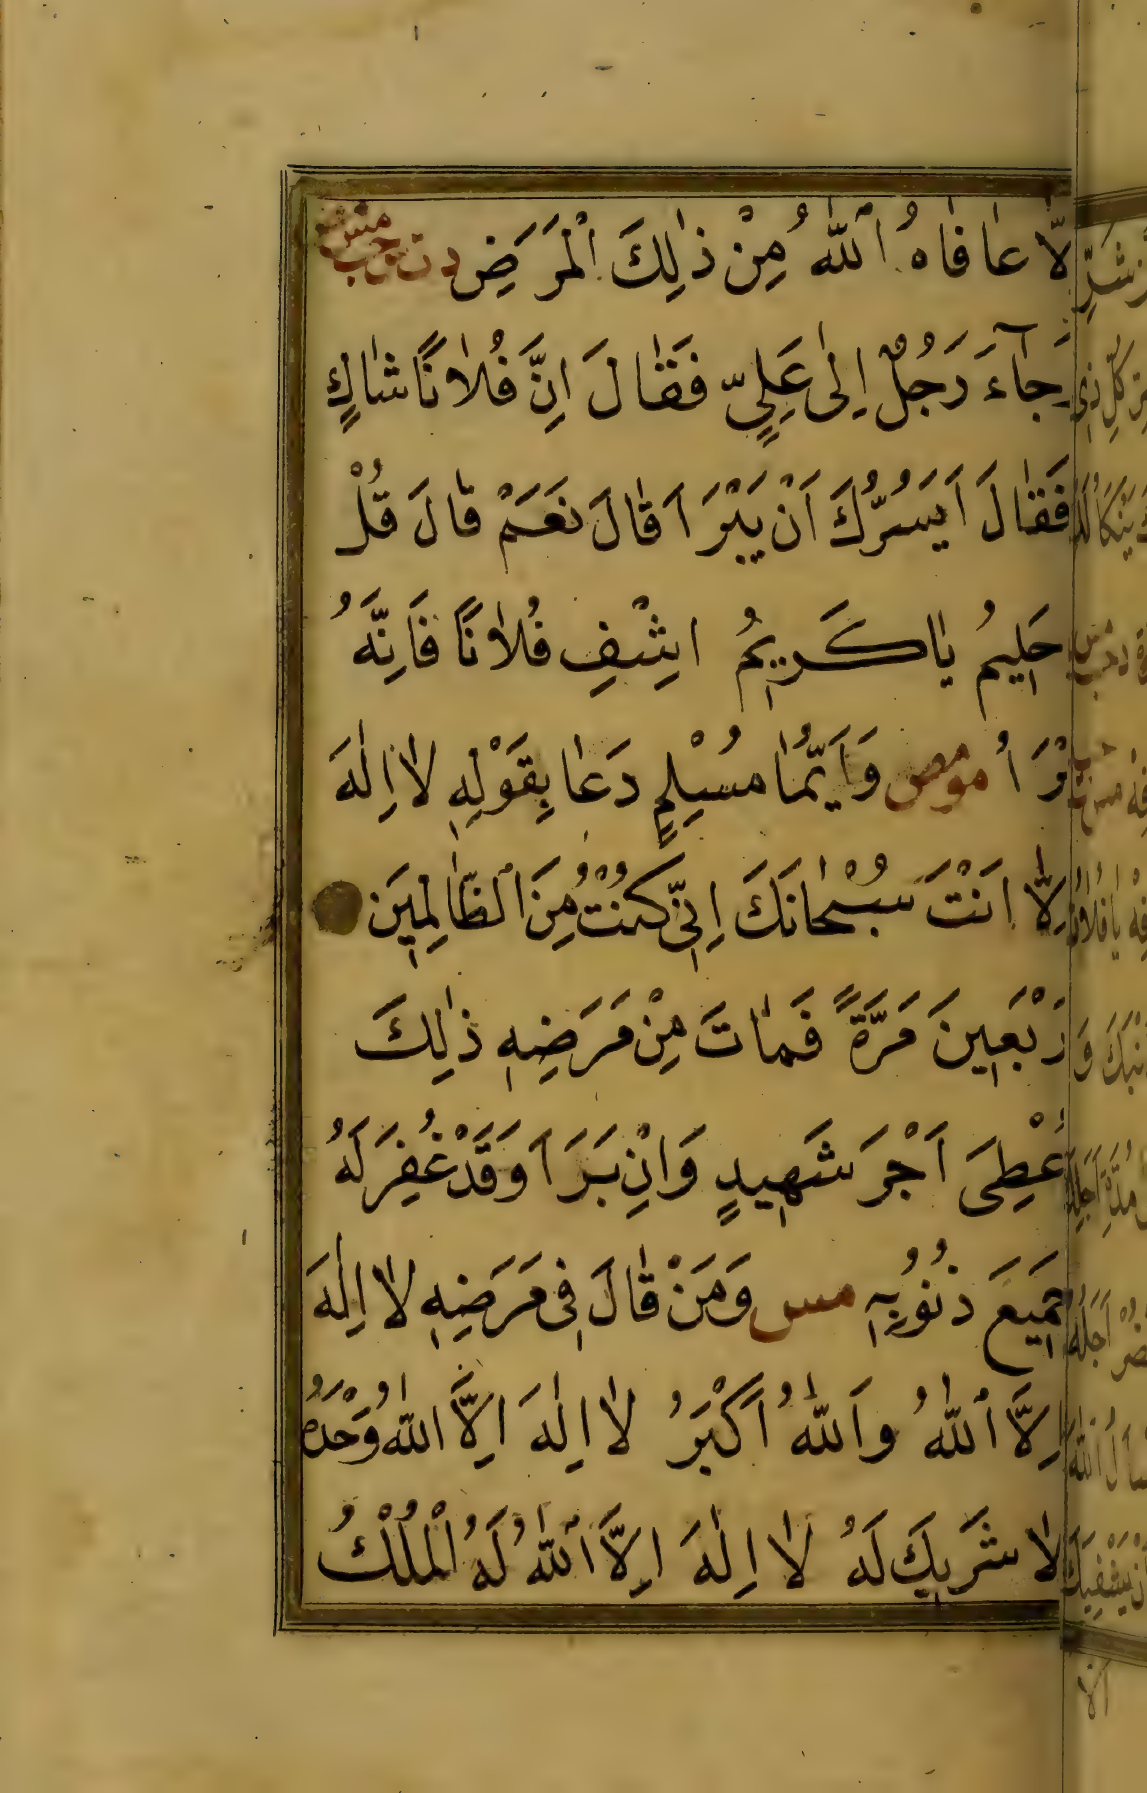 لَّا عَافَاهُ ٱللّٰهُ مِنْ ذٰلِكَ ٱلْمَرَضِ د ت حب مس
جَآءَ رَجُلٌ اِلٰى عَلِيٍّ فَقَالَ اِنَّ فُلَانًا شَاكٍ
فَقَالَ اَيَسُرُّكَ اَنْ يَبْرَاَ قَالَ نَعَمْ قَالَ قُلْ
حَلِيمُ يَا كَرِيمُ اشْفِ فُلَانًا فَاِنَّهُ
بْرَاُ مومص وَاَيُّمَا مُسْلِمٍ دَعَا بِقَوْلِهِ لَا اِلٰهَ
اِلَّا اَنْتَ سُبْحَانَكَ اِنِّي كُنْتُ مِنَ ٱلظَّالِمِينَ
رْبَعِينَ مَرَّةً فَمَاتَ مِنْ مَرَضِهِ ذٰلِكَ
عْطِىَ اَجْرَ شَهِيدٍ وَاِنْ بَرَاَ وَقَدْ غُفِرَ لَهُ
جَمِيعَ ذُنُوبِهِ مس وَمَنْ قَالَ فِى مَرَضِهِ لَا اِلٰهَ
اِلَّا ٱللّٰهُ وَٱللّٰهُ اَكْبَرُ لَا اِلٰهَ اِلَّا اللّٰهُ وَحْدَهُ
لَا شَرِيكَ لَهُ لَا اِلٰهَ اِلَّا ٱللّٰهُ لَهُ الْمُلْكُ